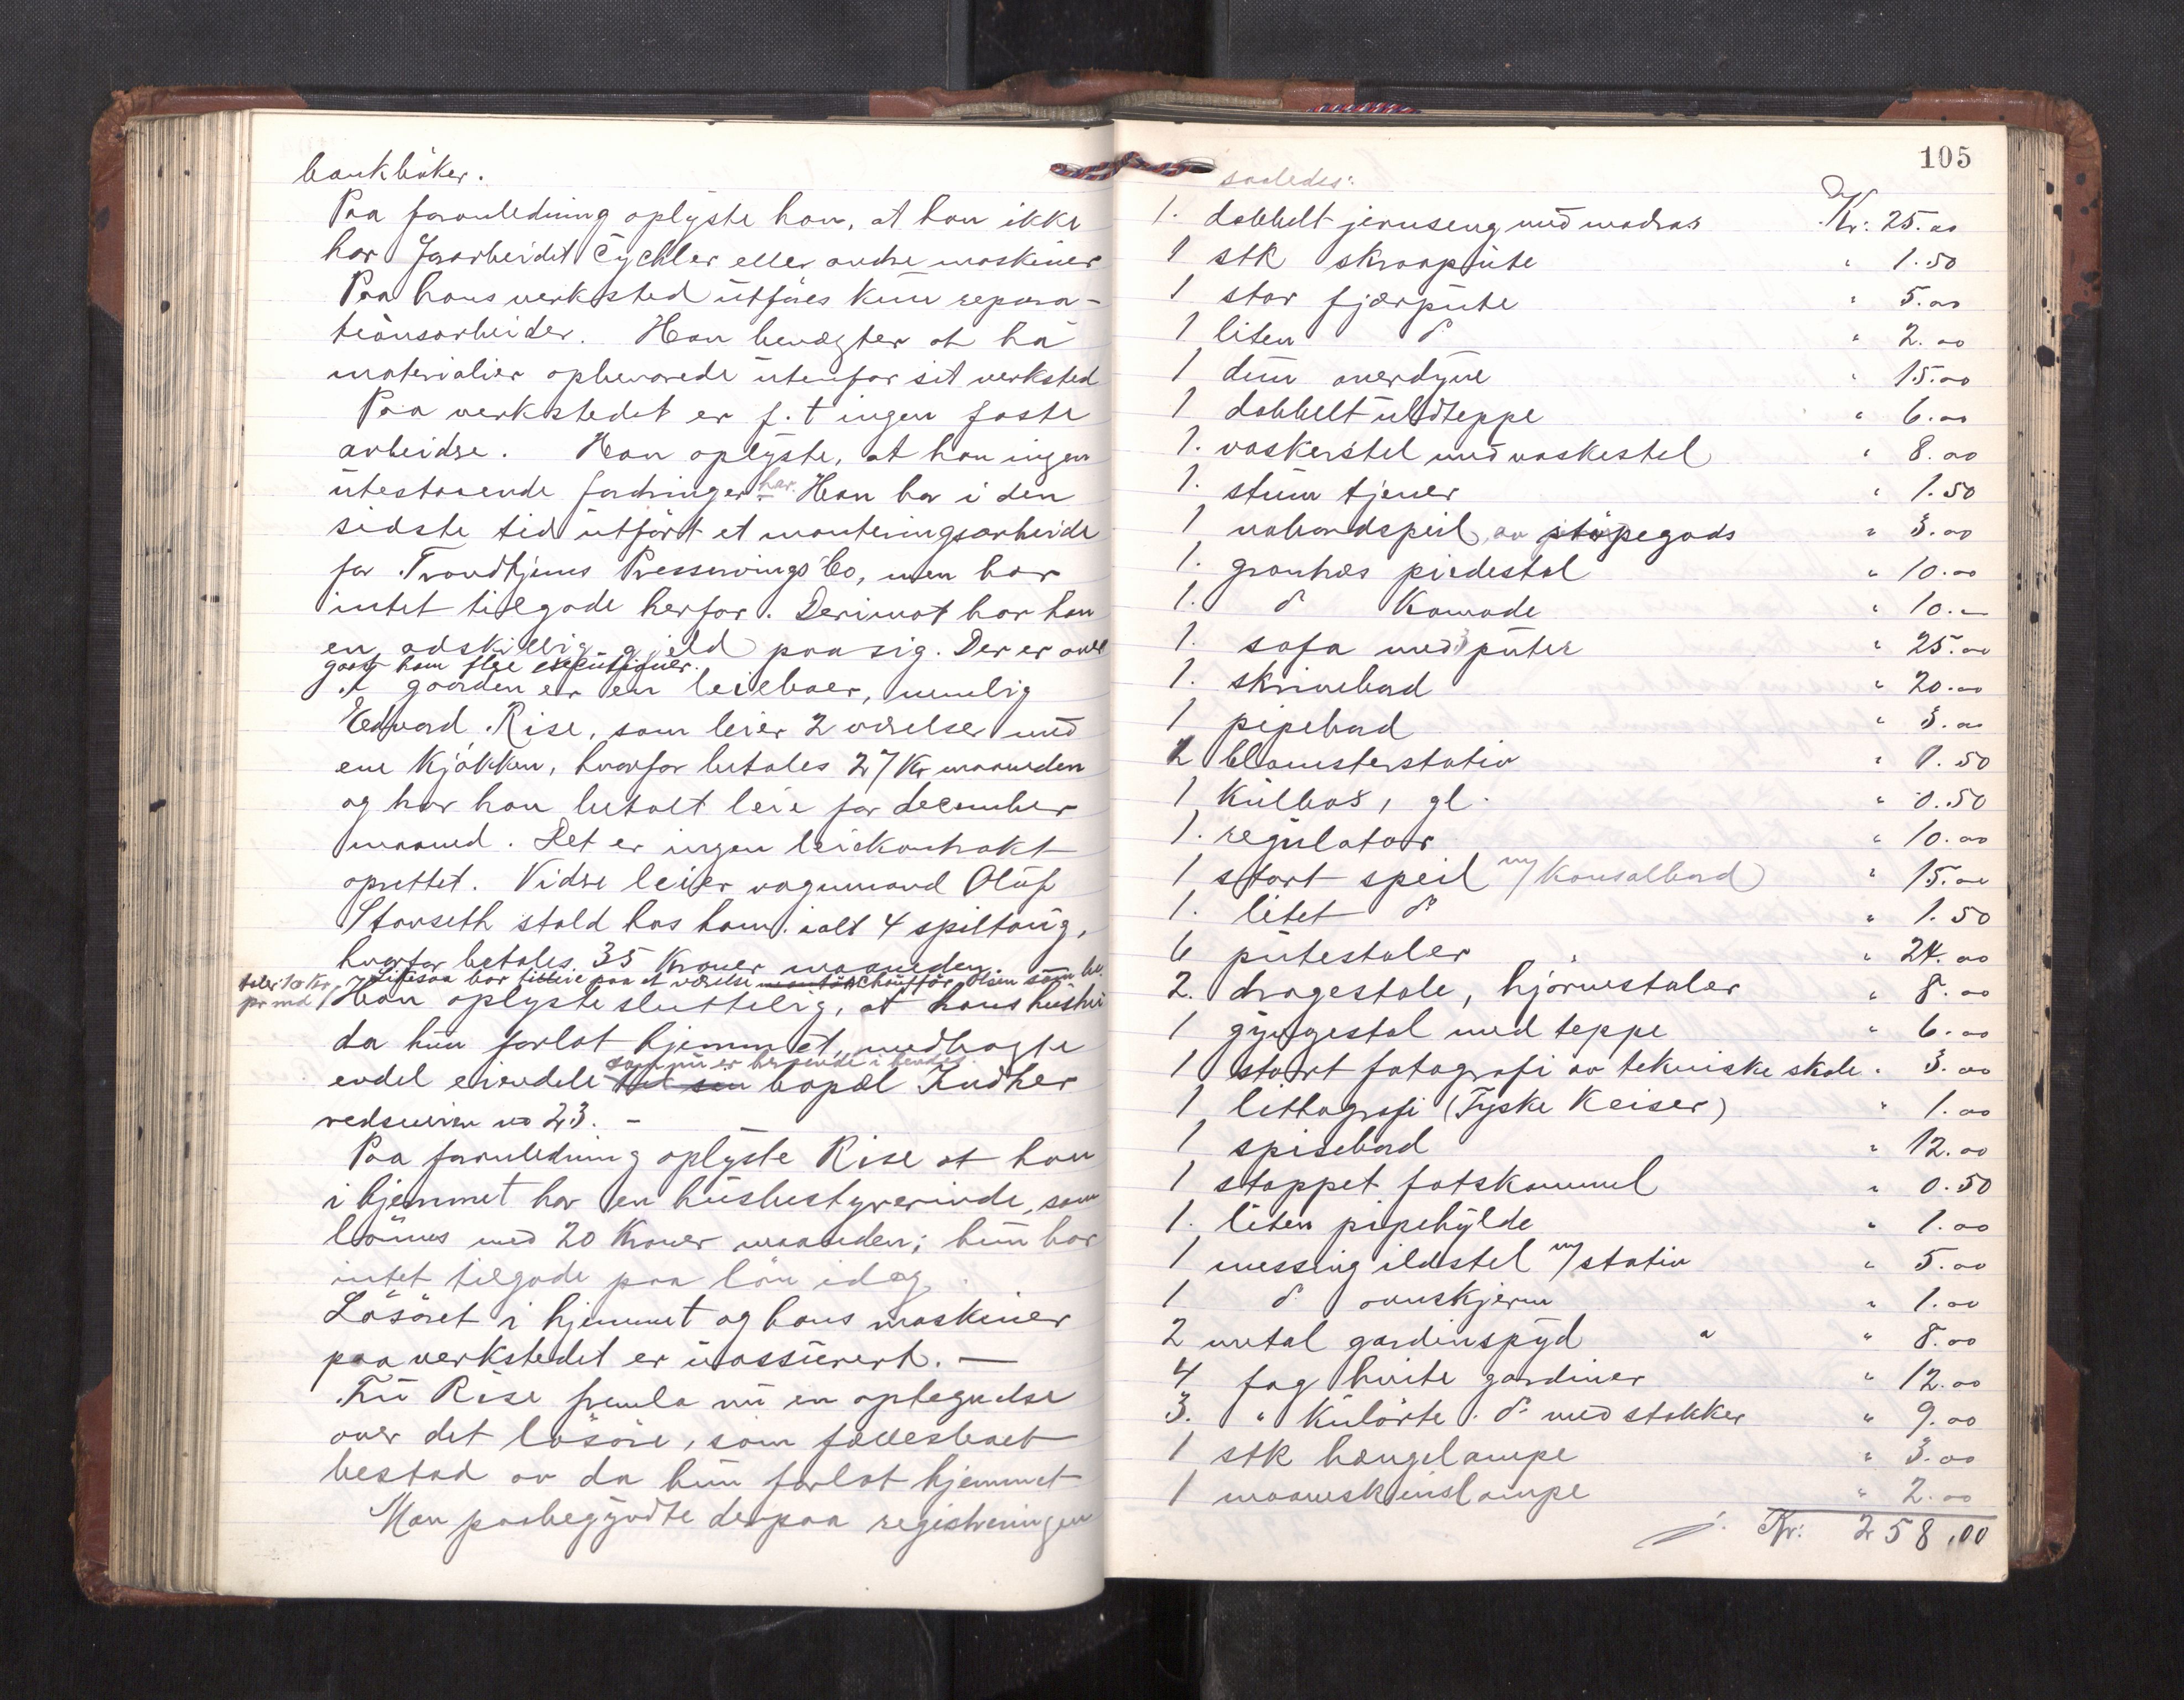 bankböker.
Paa foranledning oplyste han, at han ikke
har forarbeidet Cychler eller andre maskiner
Paa hans verksted utföres kun repara-
tionsarbeider. Han benegter at ha
materialier opbevarede utenfor sit verksted
Paa verkstedet er f. t ingen faste
arbeidre. Han oplyste, at han ingen
utestaaende fordringer har. Han har i den
sidste tid utfört et monteringsarbeide
for Trondhjems Preserverings Co, men har
intet tilgode herfor. Derimot har han
en adskillig gjeld paa sig. Der er over
gaat ham flere executioner.
I gaarden er en leieboer, nemlig
Edvard Rise, som leier 2 værelser med
ene Kjökken, hvorfor betales 27 Kr maaneden
og har han betalt leie for december
maaned. Det er ingen leiekontrakt
oprettet. Vidre leier vognmand Oluf
Storseth stald hos ham. ialt 4 spiltaug,
hvorfor betales 35 Kroner maaneden.
Likesaa har tilleie paa et værelse chaufför Olsen som be-
taler 10 Kr
pr md
Han oplyste sluttelig, at hans hustru
da hun forlot hjemmet, medbragte
som nu er beroende i hendes
endel eiendele bopæl Indher
redsveien no 23. -
Paa foranledning oplyste Rise at han
i hjemmet har en husbestyrerinde, som
lönnes med 20 Kroner maaneden; hun har
intet tilgode paa lön idag.
Lösöret i hjemmet og hans maskiner
paa verkstedet er uassurert. —
Fru Rise fremla nu en optegnelse
over det lösöre, som fællesboet
bestod av da hun forlot hjemmet
Man paabegyndte derpaa registreringen
105
saaledes:
1. dobbelt jernseng med madras Kr: 25.00
1 stk skraapute " 1.50
1 stor fjærpute " 5.00
1 liten do " 2.00
1 dun overdyne " 15.00
1 dobbelt uldteppe " 6.00
1. vaskerstel med vaskestel " 8.00
1. stum tjener " 1.50
1 vabordspeil, av stöpegods " 3.00
1. granhæs piedestal " 10.00
1. do Komode " 10.—
1. sofa med 3 puter " 25.00
1. skrivebord " 20.00
1 pipebord " 3.00
1 blomsterstativ " 1.50
1 kulboks, gl. " 0.50
1. regulator " 10.00
1 stort speil m/ konsolbord " 15.00
1. litet do " 1.50
6 putestoler " 24.00
2. dragestole, hjörnestoler " 8.00
1 gyngestol med teppe " 6.00
1 stort fotografi av tekniske skole " 3.00
1 littografi (Tyske Keiser) " 1.00
1 spisebord " 12.00
1 stoppet fotskammel " 0.50
1. liten pipehylde " 1.00
1 messing ildstel m/ stativ " 5.00
1 do ovnskjerm " 1.00
2 metal gardinspyd " 8.00
4 fag hvite gardiner " 12.00
3. " kulörte do med stokker " 9.00
1 stk hængelampe " 3.00
1 maaneskinslampe " 2.00
Kr: 258,00